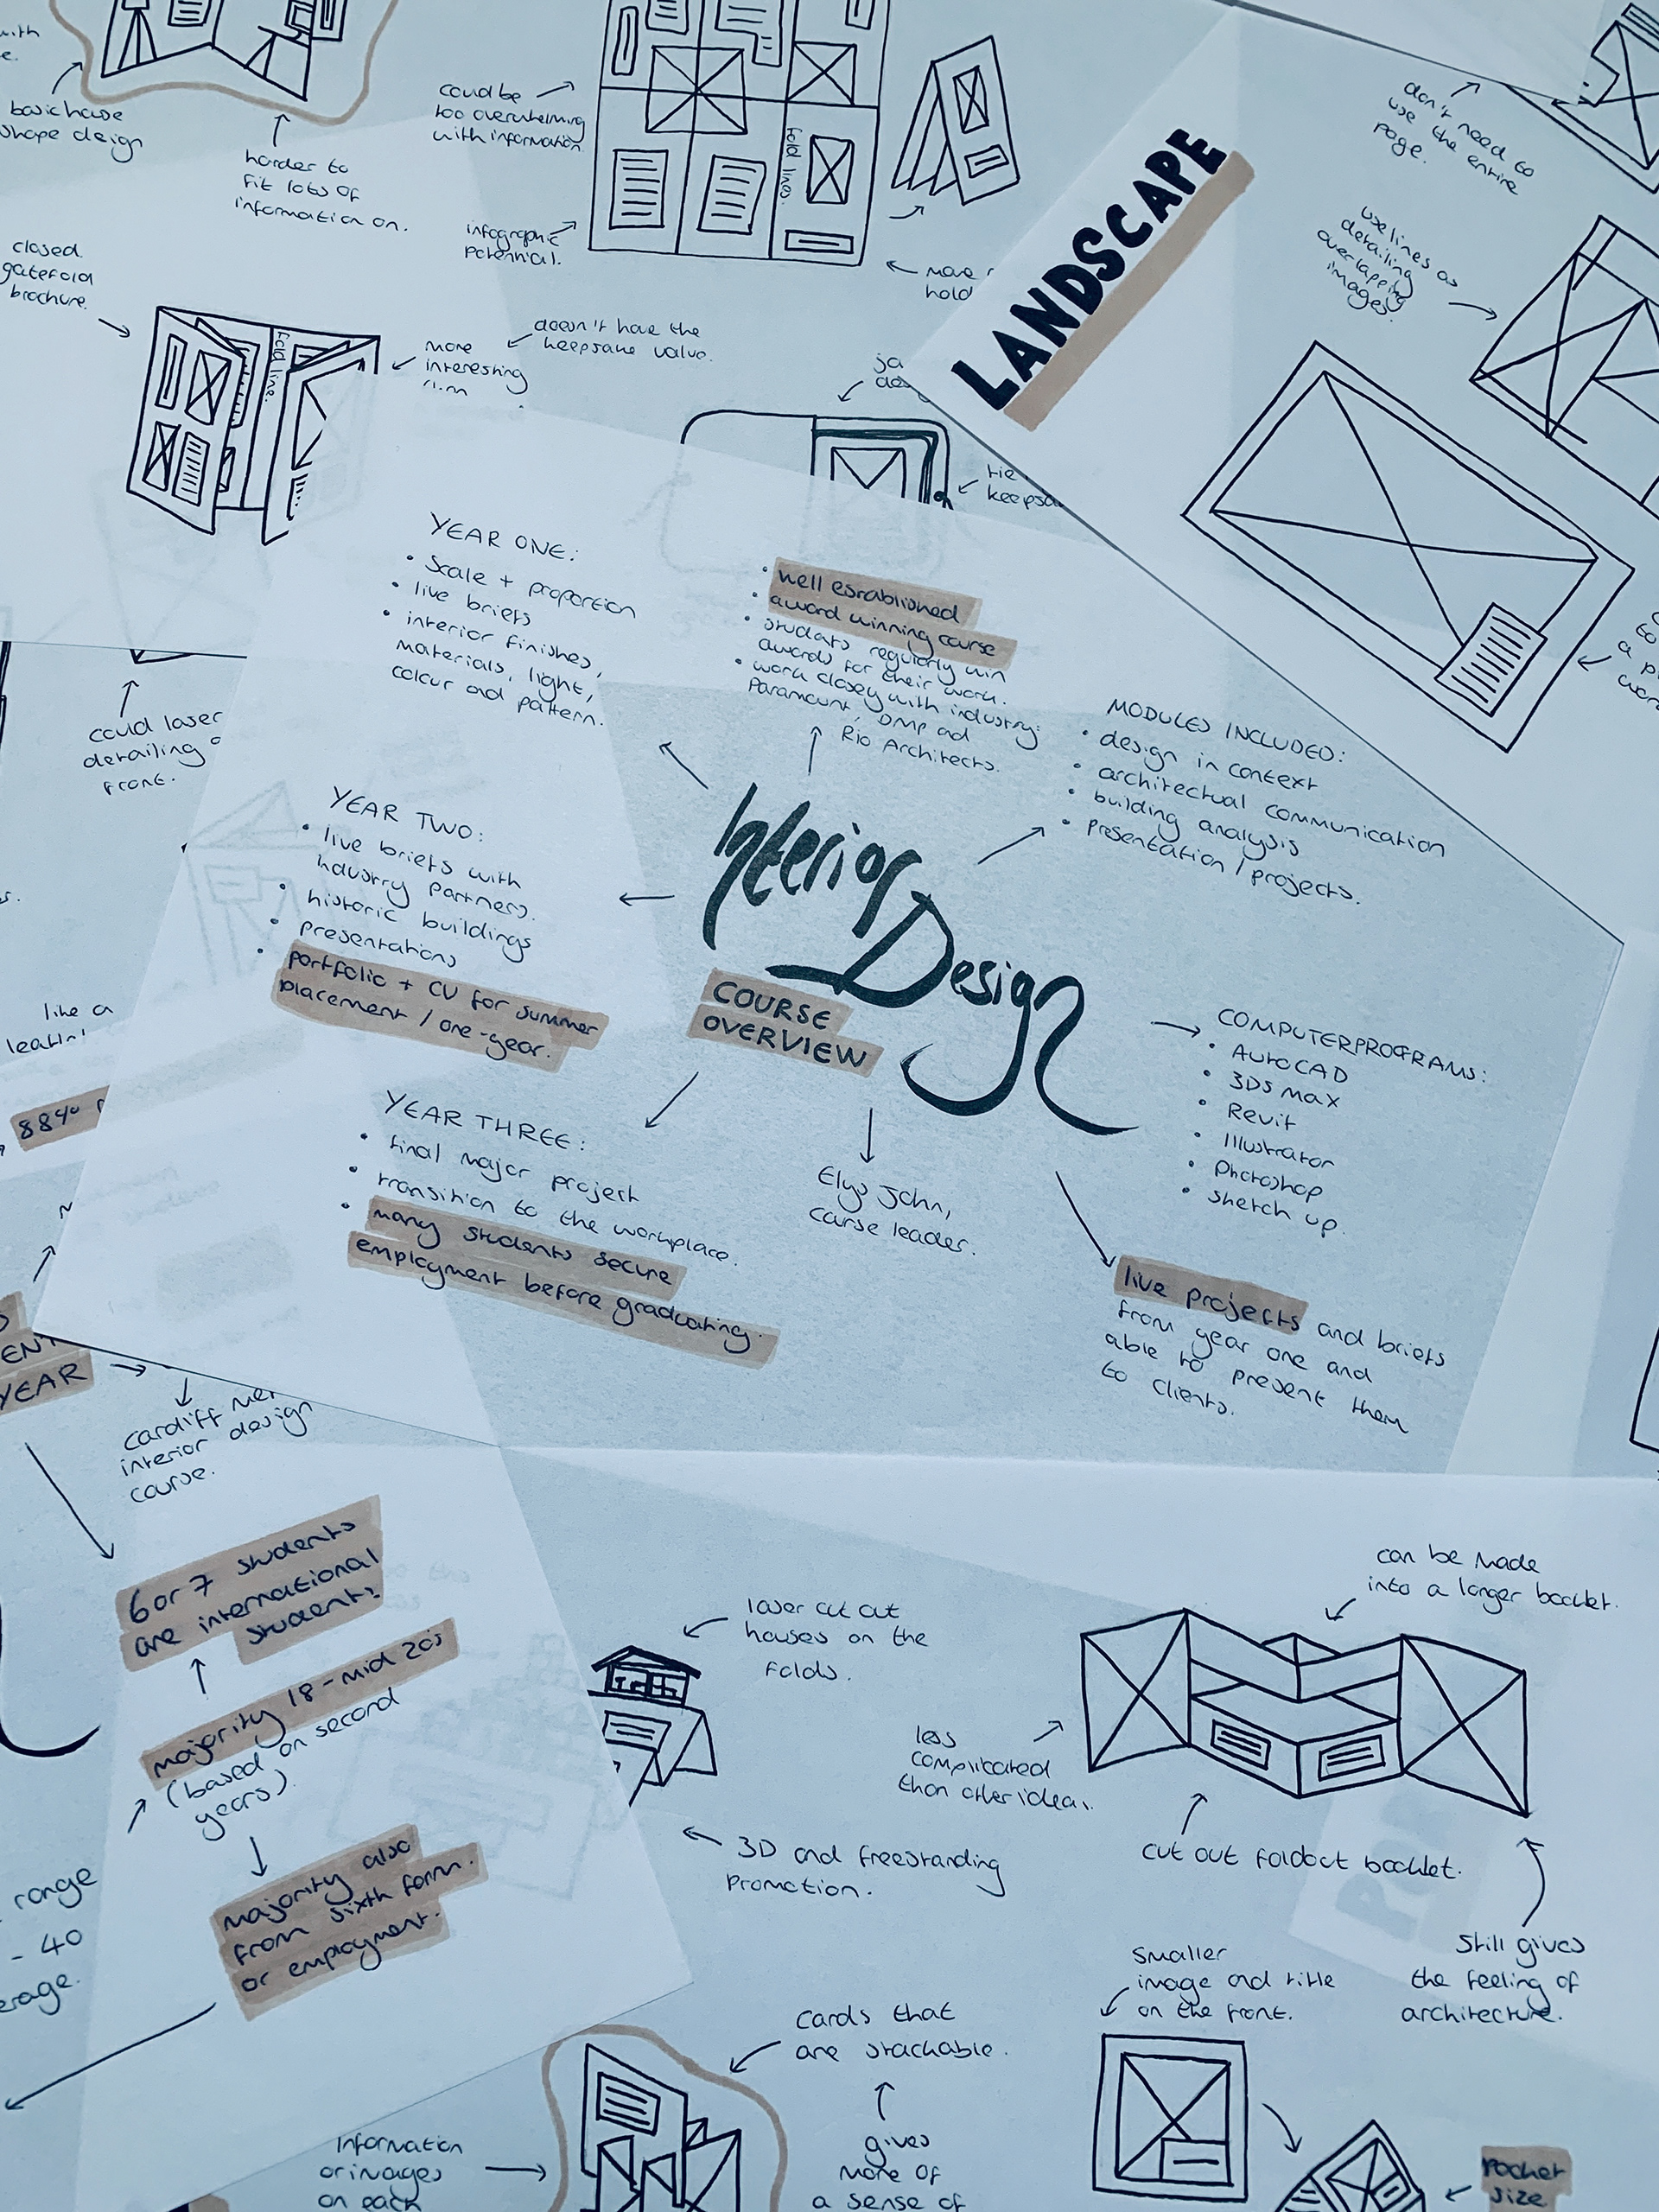 with
basic house
shape design
harder to
fit lots of
information on.
could be
too overwhelming
with information.
infographic
potential.
fold lines.
more
hold
don't need to
use the entire
page.
LANDSCAPE
use lines as
detailing
overlapping
images.
closed
gatefold
brochure.
fold line.
more
interesting
doesn't have the
keepsake value.
ja
tie
keepsa
could laser
detailing
front.
YEAR ONE:
• Scale + proportion
• live briefs
• interior finishes,
materials, light,
colour and pattern.
• well established
• award winning course
• students regularly win
awards for their work.
• work closey with industry:
Paramount, DMP and
Rio Architects.
MODULES INCLUDED:
• design in context
• architectual communication
• building analysis
• presentation / projects.
YEAR TWO:
• live briefs with
industry partners.
• historic buildings
• presentations
• portfolio + CV for summer
placement / one-year.
Interior
Design
COURSE
OVERVIEW
COMPUTER PROGRAMS:
• AUTOCAD
• 3DS MAX
• Revit
• Illustrator
• Photoshop
• Sketch up.
YEAR THREE:
• final major project
• transition to the workplace.
• many students secure
employment before graduating.
Elys John,
course leader.
live projects and briefs
from year one and
able to present them
to clients.
like a
88%
YEAR
Cardiff Met
interior design
course.
6 or 7 students
are international
students.
majority 18-mid 20's
(based on second
years).
majority also
from sixth form.
or employment.
range
- 40
laser cut out
houses on the
folds.
3D and freestanding
promotion.
can be made
into a longer booklet.
less
complicated
than other ideas.
cut out foldout booklet.
Still gives
the feeling of
architecture.
Smaller
image and title
on the front.
Cards that
are stackable.
gives
more of
a sense of
Information
or images
on each
pocket
size